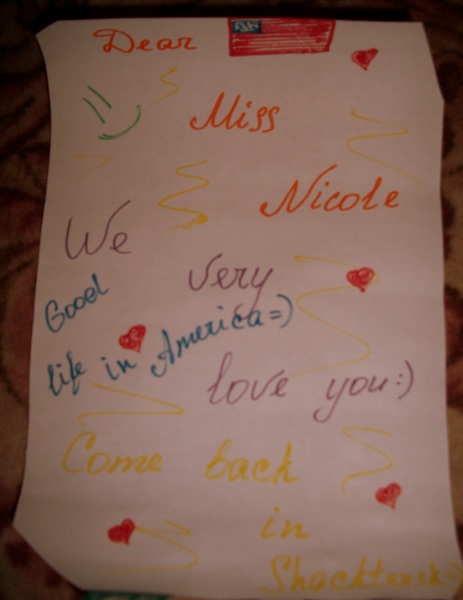 Dear
Miss
Nicole
We
very
love you:)
Good
life in America=)
Come back
in
Shacktersk=)